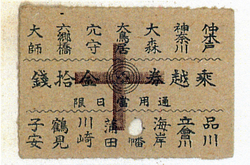 仲木戸 神奈川 大森 大鳥居 穴守 六郷橋 大師
乘越券金拾錢
通用當日限
品川 立會川 海岸 八幡 蒲田 川崎 鶴見 子安